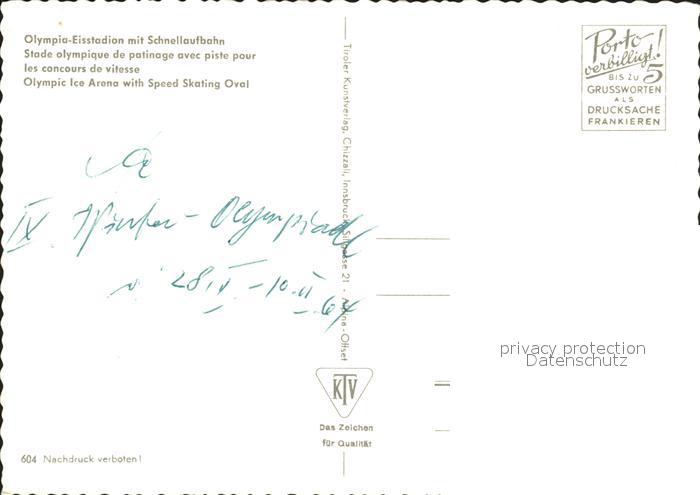 Olympia-Eisstadion mit Schnellaufbahn
Stade olympique de patinage avec piste pour
les concours de vitesse
Olympic Ice Arena with Speed Skating Oval
IX Winter-Olympiade
Tiroler Kunstverlag, Chizzali, Innsbruck, Sillgasse 21 · Alpina-Offset
Porto
verbilligt!
BIS ZU 5
GRUSSWORTEN
ALS
DRUCKSACHE
FRANKIEREN
privacy protection
Datenschutz
KTV
Das Zeichen
für Qualität
604 Nachdruck verboten!